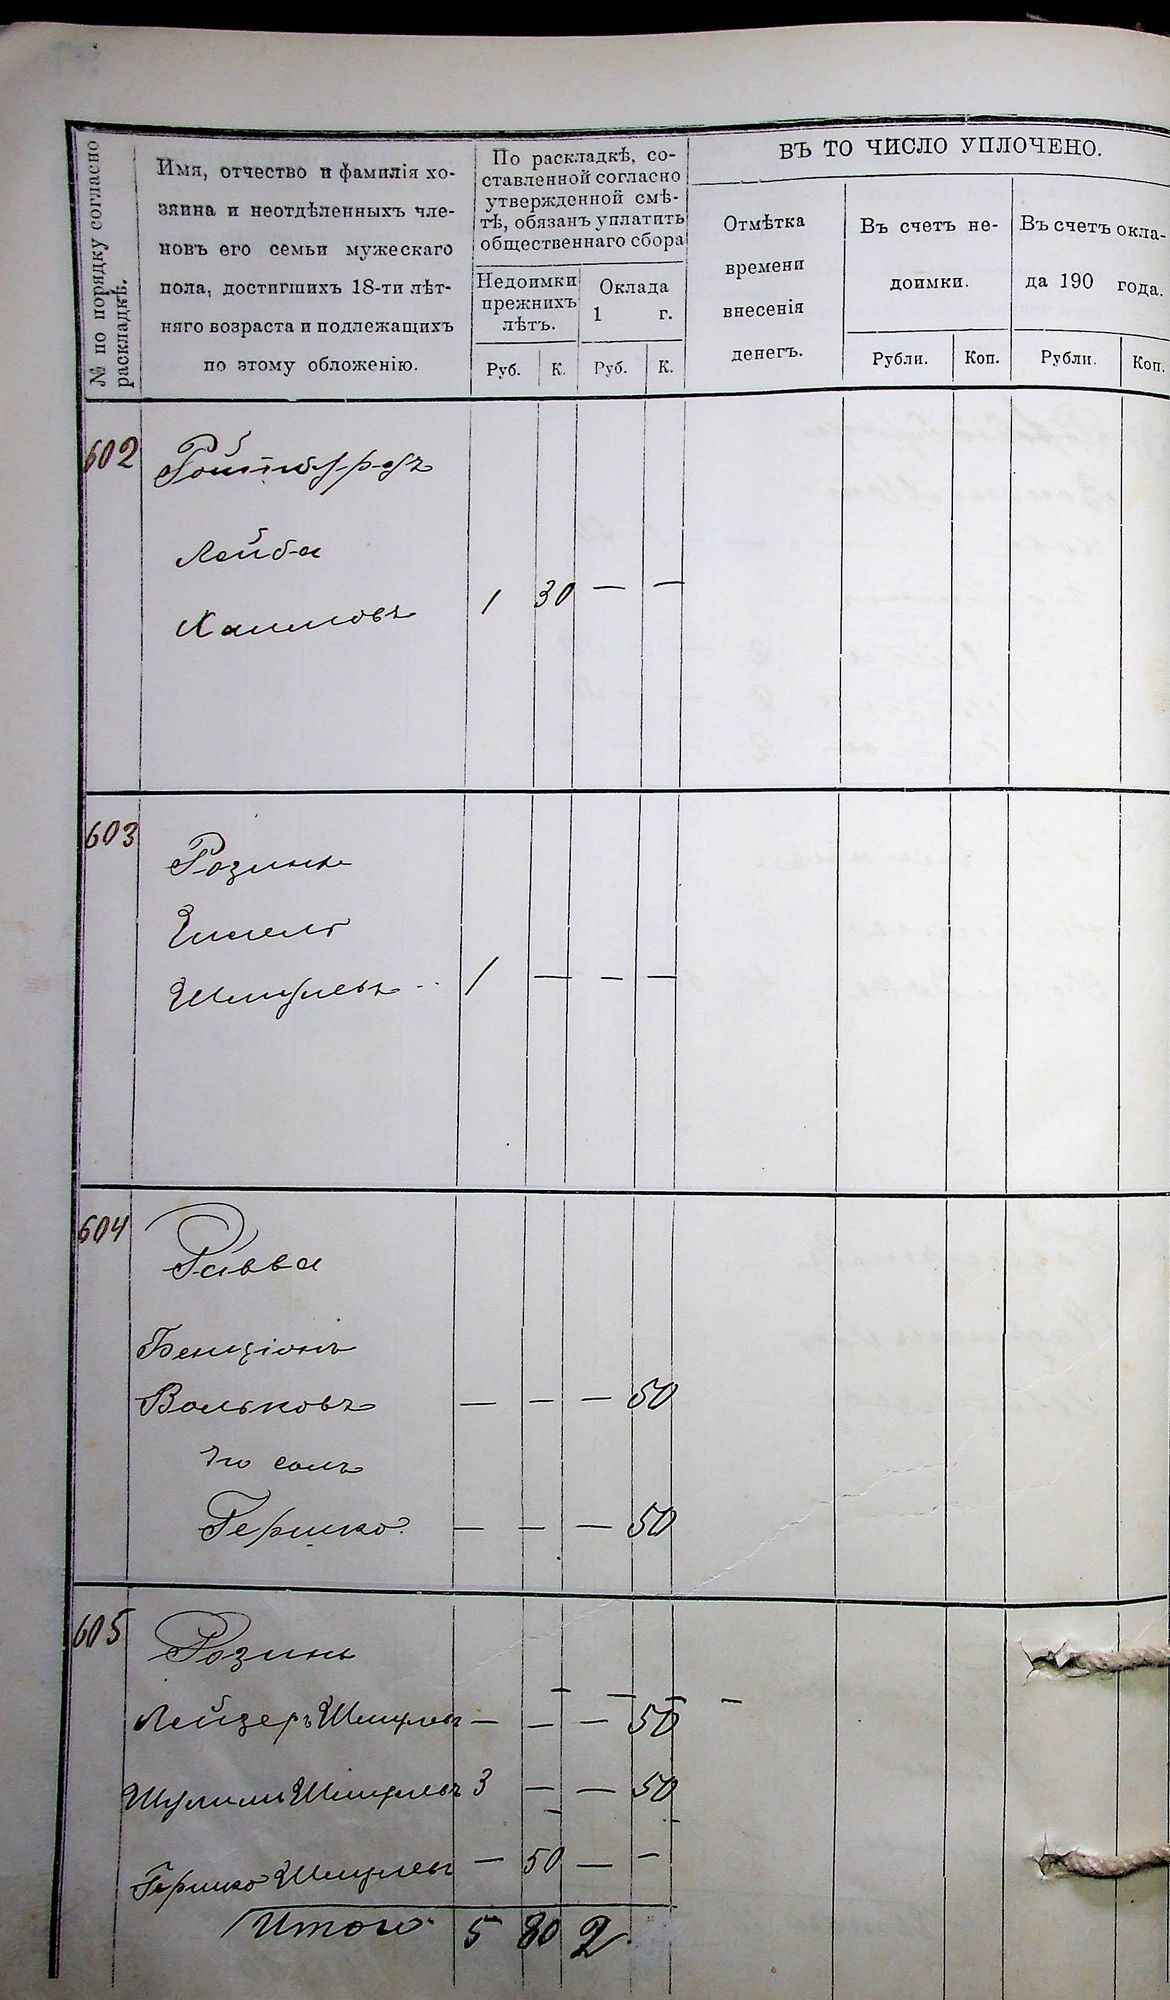 № по порядку согласно
раскладкѣ.
Имя, отчество и фамилія хо-
зяина и неотдѣленныхъ чле-
новъ его семьи мужескаго
пола, достигшихъ 18-ти лѣт-
няго возраста и подлежащихъ
по этому обложенію.
По раскладкѣ, со-
ставленной согласно
утвержденной смѣ-
тѣ, обязанъ уплатить
общественнаго сбора
Недоимки
прежнихъ
лѣтъ.
Оклада
1 г.
Руб. К. Руб. К.
ВЪ ТО ЧИСЛО УПЛОЧЕНО.
Отмѣтка
времени
внесенія
денегъ.
Въ счетъ не-
доимки.
Рубли. Коп.
Въ счетъ окла-
да 190 года.
Рубли. Коп.
602
Лейба
Хаимовъ 1 30 — —
603
Розинъ
Шмулевъ 1 — — —
604
Равва
Бенціонъ
Вольковъ — — — 50
Гершко — — — 50
605
Розинъ
Лейзеръ Шмулевъ — — — 50
Шулимъ Шмулевъ 3 — — 50
Гершко Шмулевъ — 50 — —
Итого 5 80 2